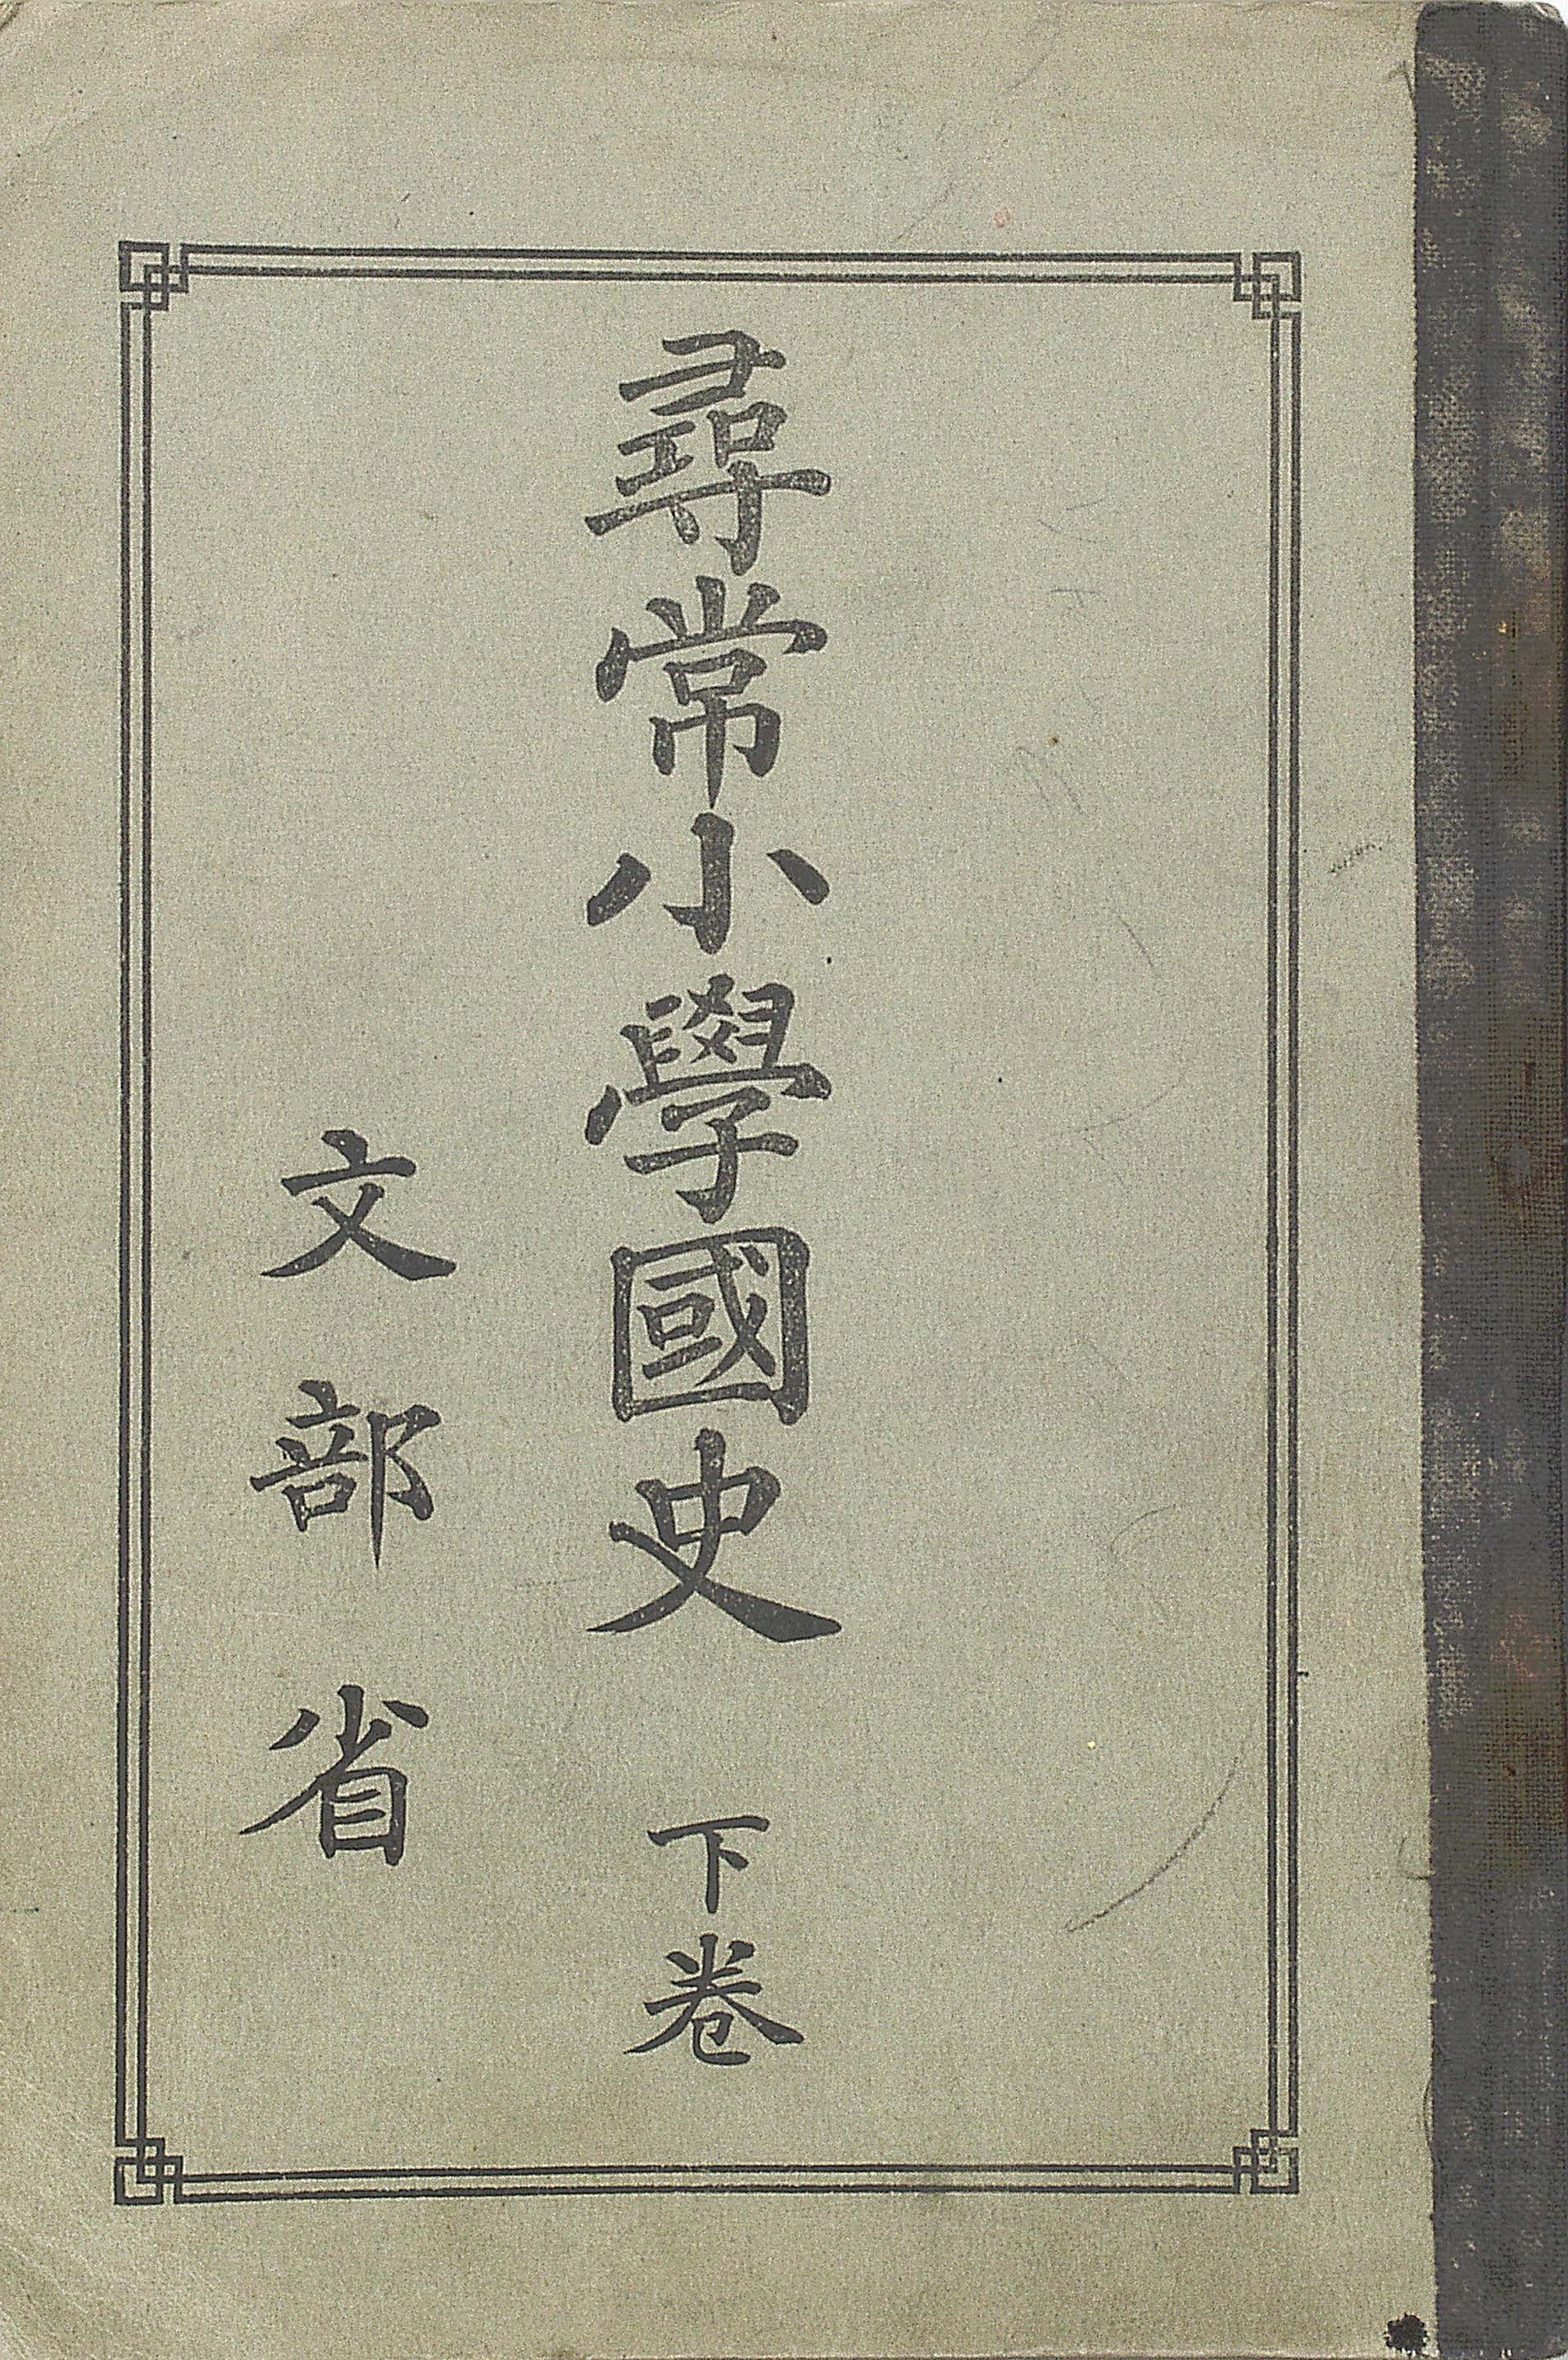 尋常小學國史 下卷
文部省